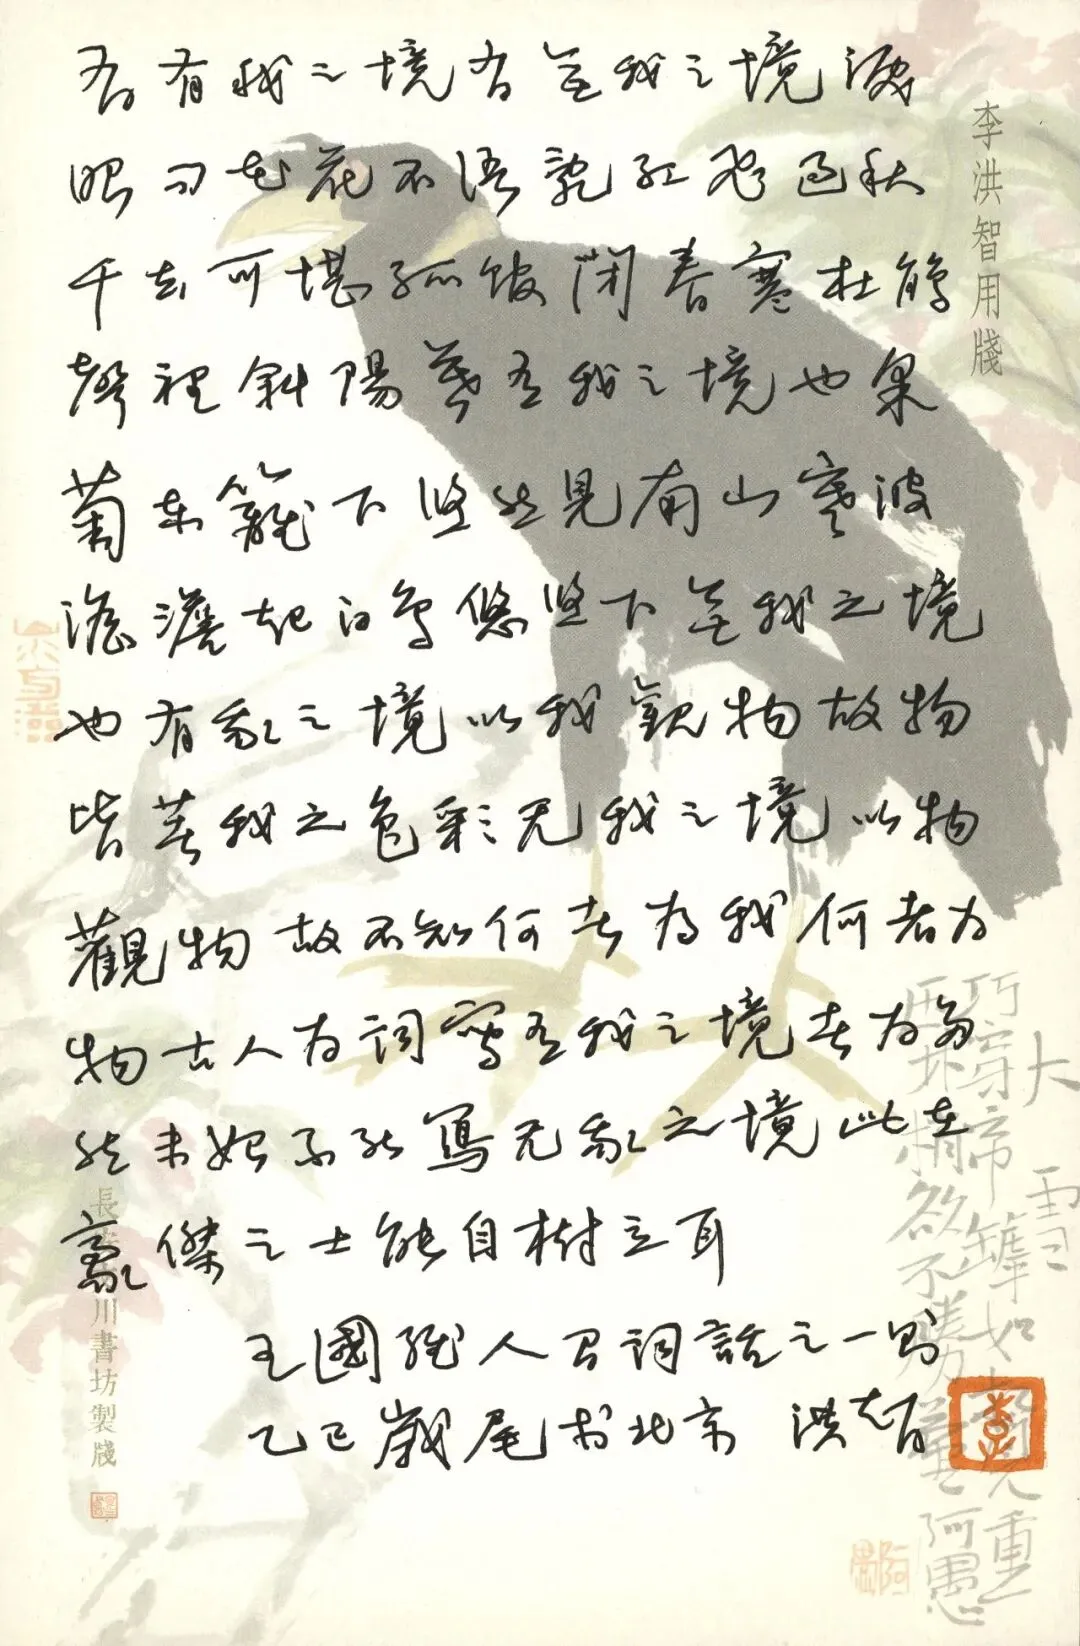 有有我之境有無我之境淚
眼问花花不语亂紅飛過秋
千去可堪孤館閉春寒杜鵑
聲裡斜陽暮有我之境也采
菊东籬下悠然見南山寒波
澹澹起白鸟悠悠下無我之境
也有我之境以我觀物故物
皆著我之色彩无我之境以物
觀物故不知何者为我何者为
物古人为詞寫有我之境者为多
然未始不能寫无我之境此在
豪傑之士能自樹立耳
王國維人间詞話之一则
乙巳歲尾於北京 洪智
李洪智用牋
大雪
巧穿帘罅如相覓重
压林梢欲不勝
阿愚
川書坊製牋